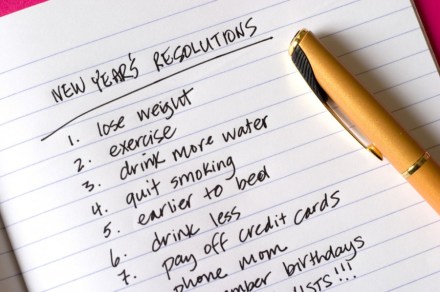 NEW YEAR'S RESOLUTIONS
1. lose weight
2. exercise
3. drink more water
4. quit smoking
5. earlier to bed
6. drink less
7. pay off credit cards
phone mom
birthdays
LISTS!!!